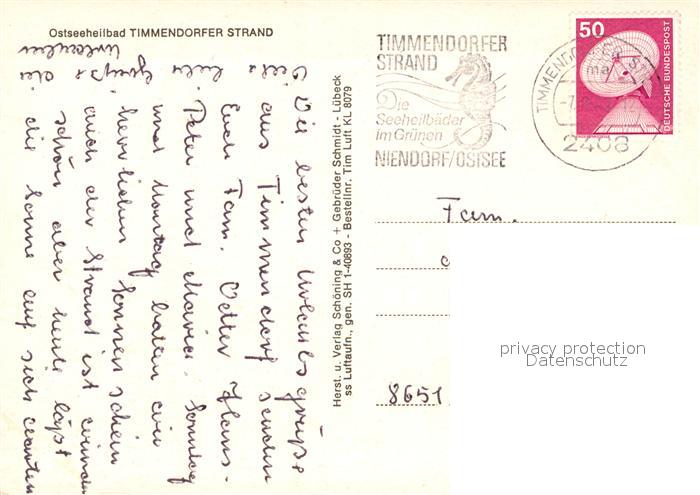 Ostseeheilbad TIMMENDORFER STRAND
Die besten Urlaubsgrüße
aus Timmendorf senden
Euch Fam. Vetter Hans-
Peter und Maria. Sonntag
und Montag hatten wir
herrlichen Sonnenschein
auch der Strand ist wunder
schön aber heute läßt
die Sonne auf sich warten
Herst. u. Verlag Schöning & Co + Gebrüder Schmidt - Lübeck
ss Luftaufn., gen. SH 1-40893 - Bestellnr. Tim Luft KL 8079
TIMMENDORFER
STRAND
Die
Seeheilbäder
im Grünen
NIENDORF/OSTSEE
TIMMENDORFER ST
ma
2408
50
DEUTSCHE BUNDESPOST
Fam.
8651
privacy protection
Datenschutz